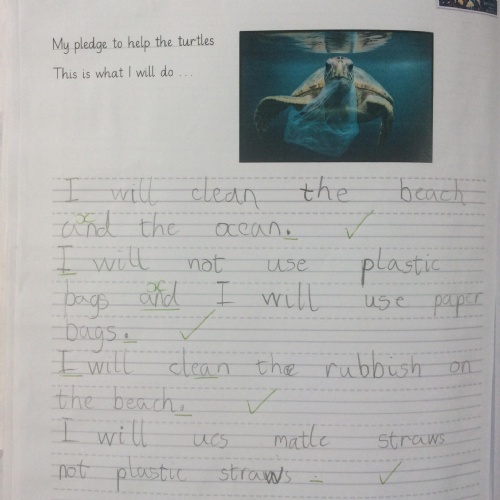 My pledge to help the turtles
This is what I will do ...
I will clean the beach
and the ocean.
I will not use plastic
bags and I will use paper
bags.
I will clean the rubbish on
the beach.
I will ucs matlc straws
not plastic straws.